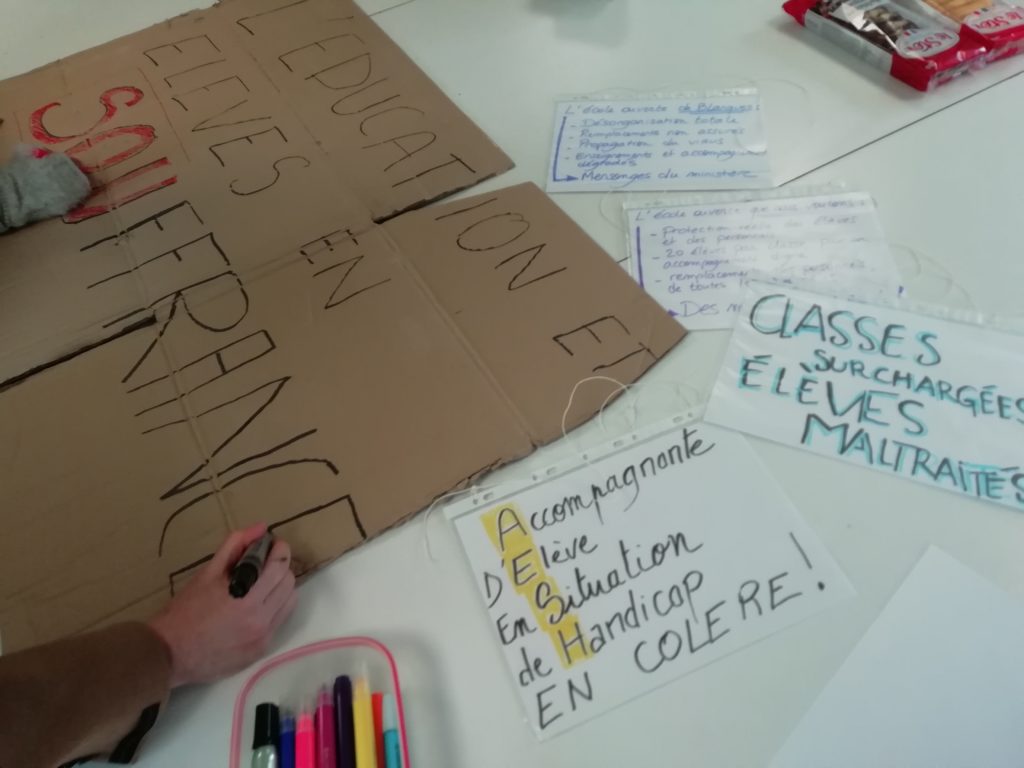 L'EDUCATION ET
ELEVES EN
SOUFFRANCE
L'école ouverte de Blanquer :
- Désorganisation totale
- Remplacements non assurés
- Propagation du virus
- Enseignements et accompagnements
dégradés
Mensonges du ministère
L'école ouverte que nous voulons :
- Protection réelle des élèves
et des personnels
- 20 élèves par classe pour un
accompagnement digne
de toutes
Des
CLASSES
SURCHARGÉES
ÉLÈVES
MALTRAITÉS
Accompagnante
D'Elève
En Situation
de Handicap
EN COLERE !